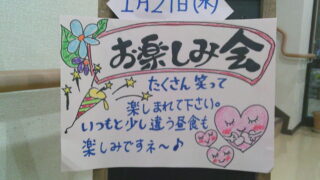 1月21日(水)
お楽しみ会
たくさん笑って
楽しまれて下さい。
いつもと少し違う昼食も
楽しみですネ〜♪